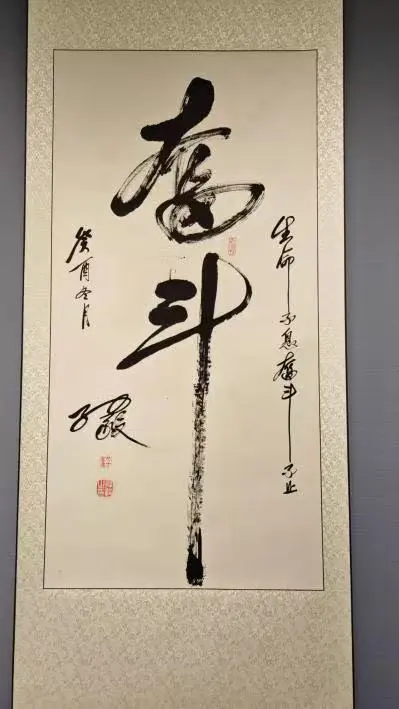 生命不息奋斗不止
奋斗
癸酉冬月